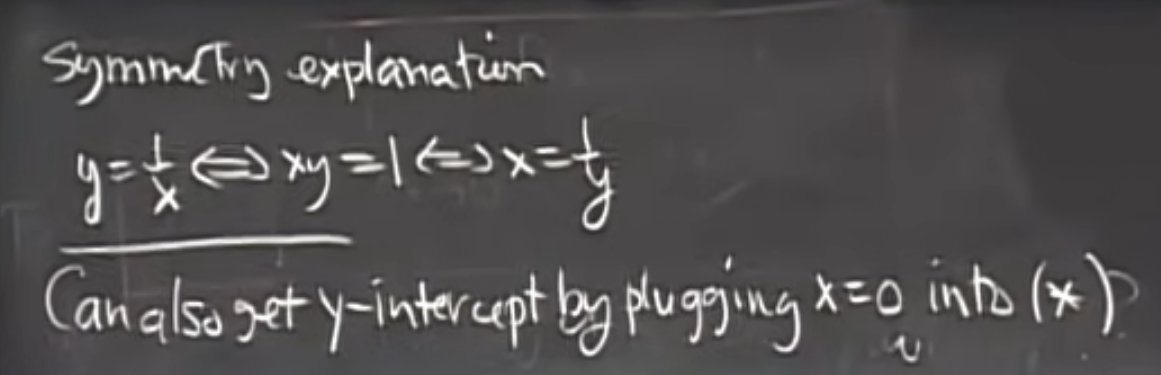 Symmetry explanation
y = 1/x ⇔ xy = 1 ⇔ x = 1/y
Can also get y-intercept by plugging x = 0 into (*)